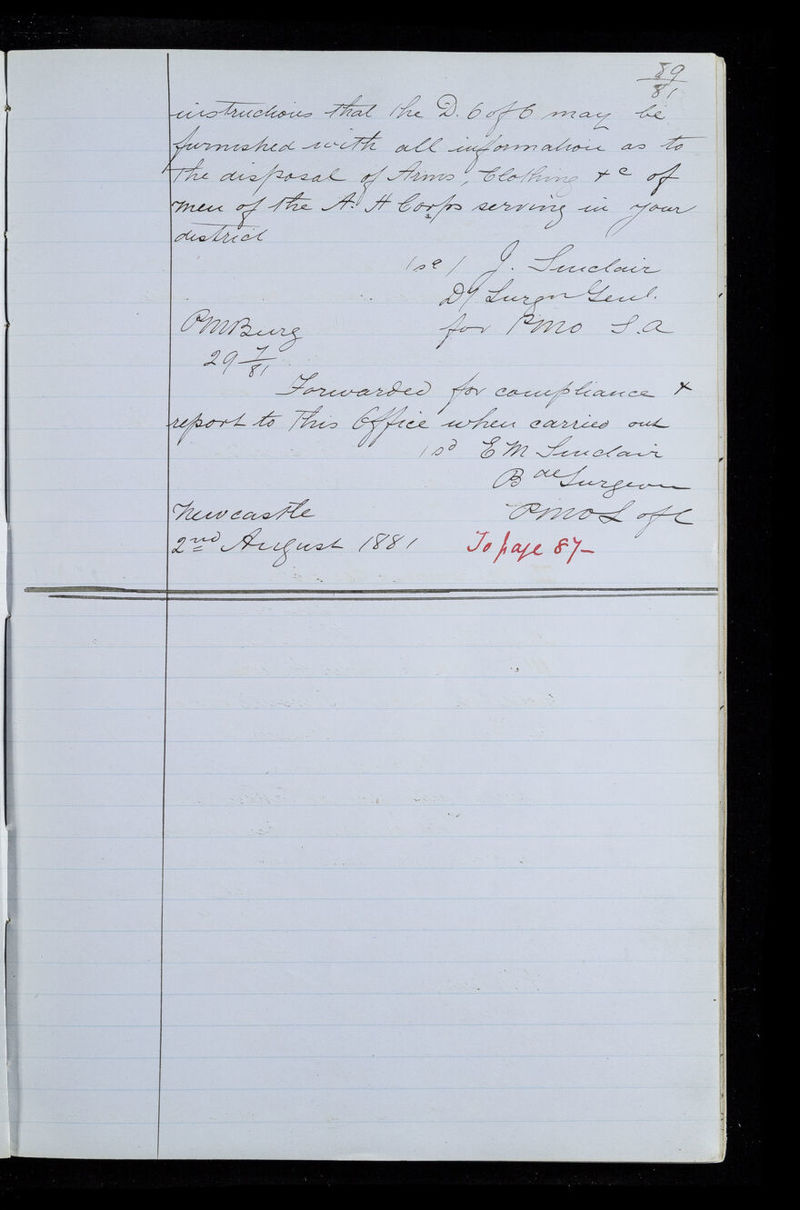 89
81
instructions that the D. C of C may be
furnished with all information as to
the disposal of Arms, Clothing &c of
men of the A. H Corps serving in your
district
J. Sinclair
Dy Surgn Genl.
PMBurg for PMO S.A
29 7/81
Forwarded for compliance &
report to This Office when carried out
sd E M Sinclair
Bde Surgeon
Newcastle PMO L of C
2nd August 1881 To page 87-